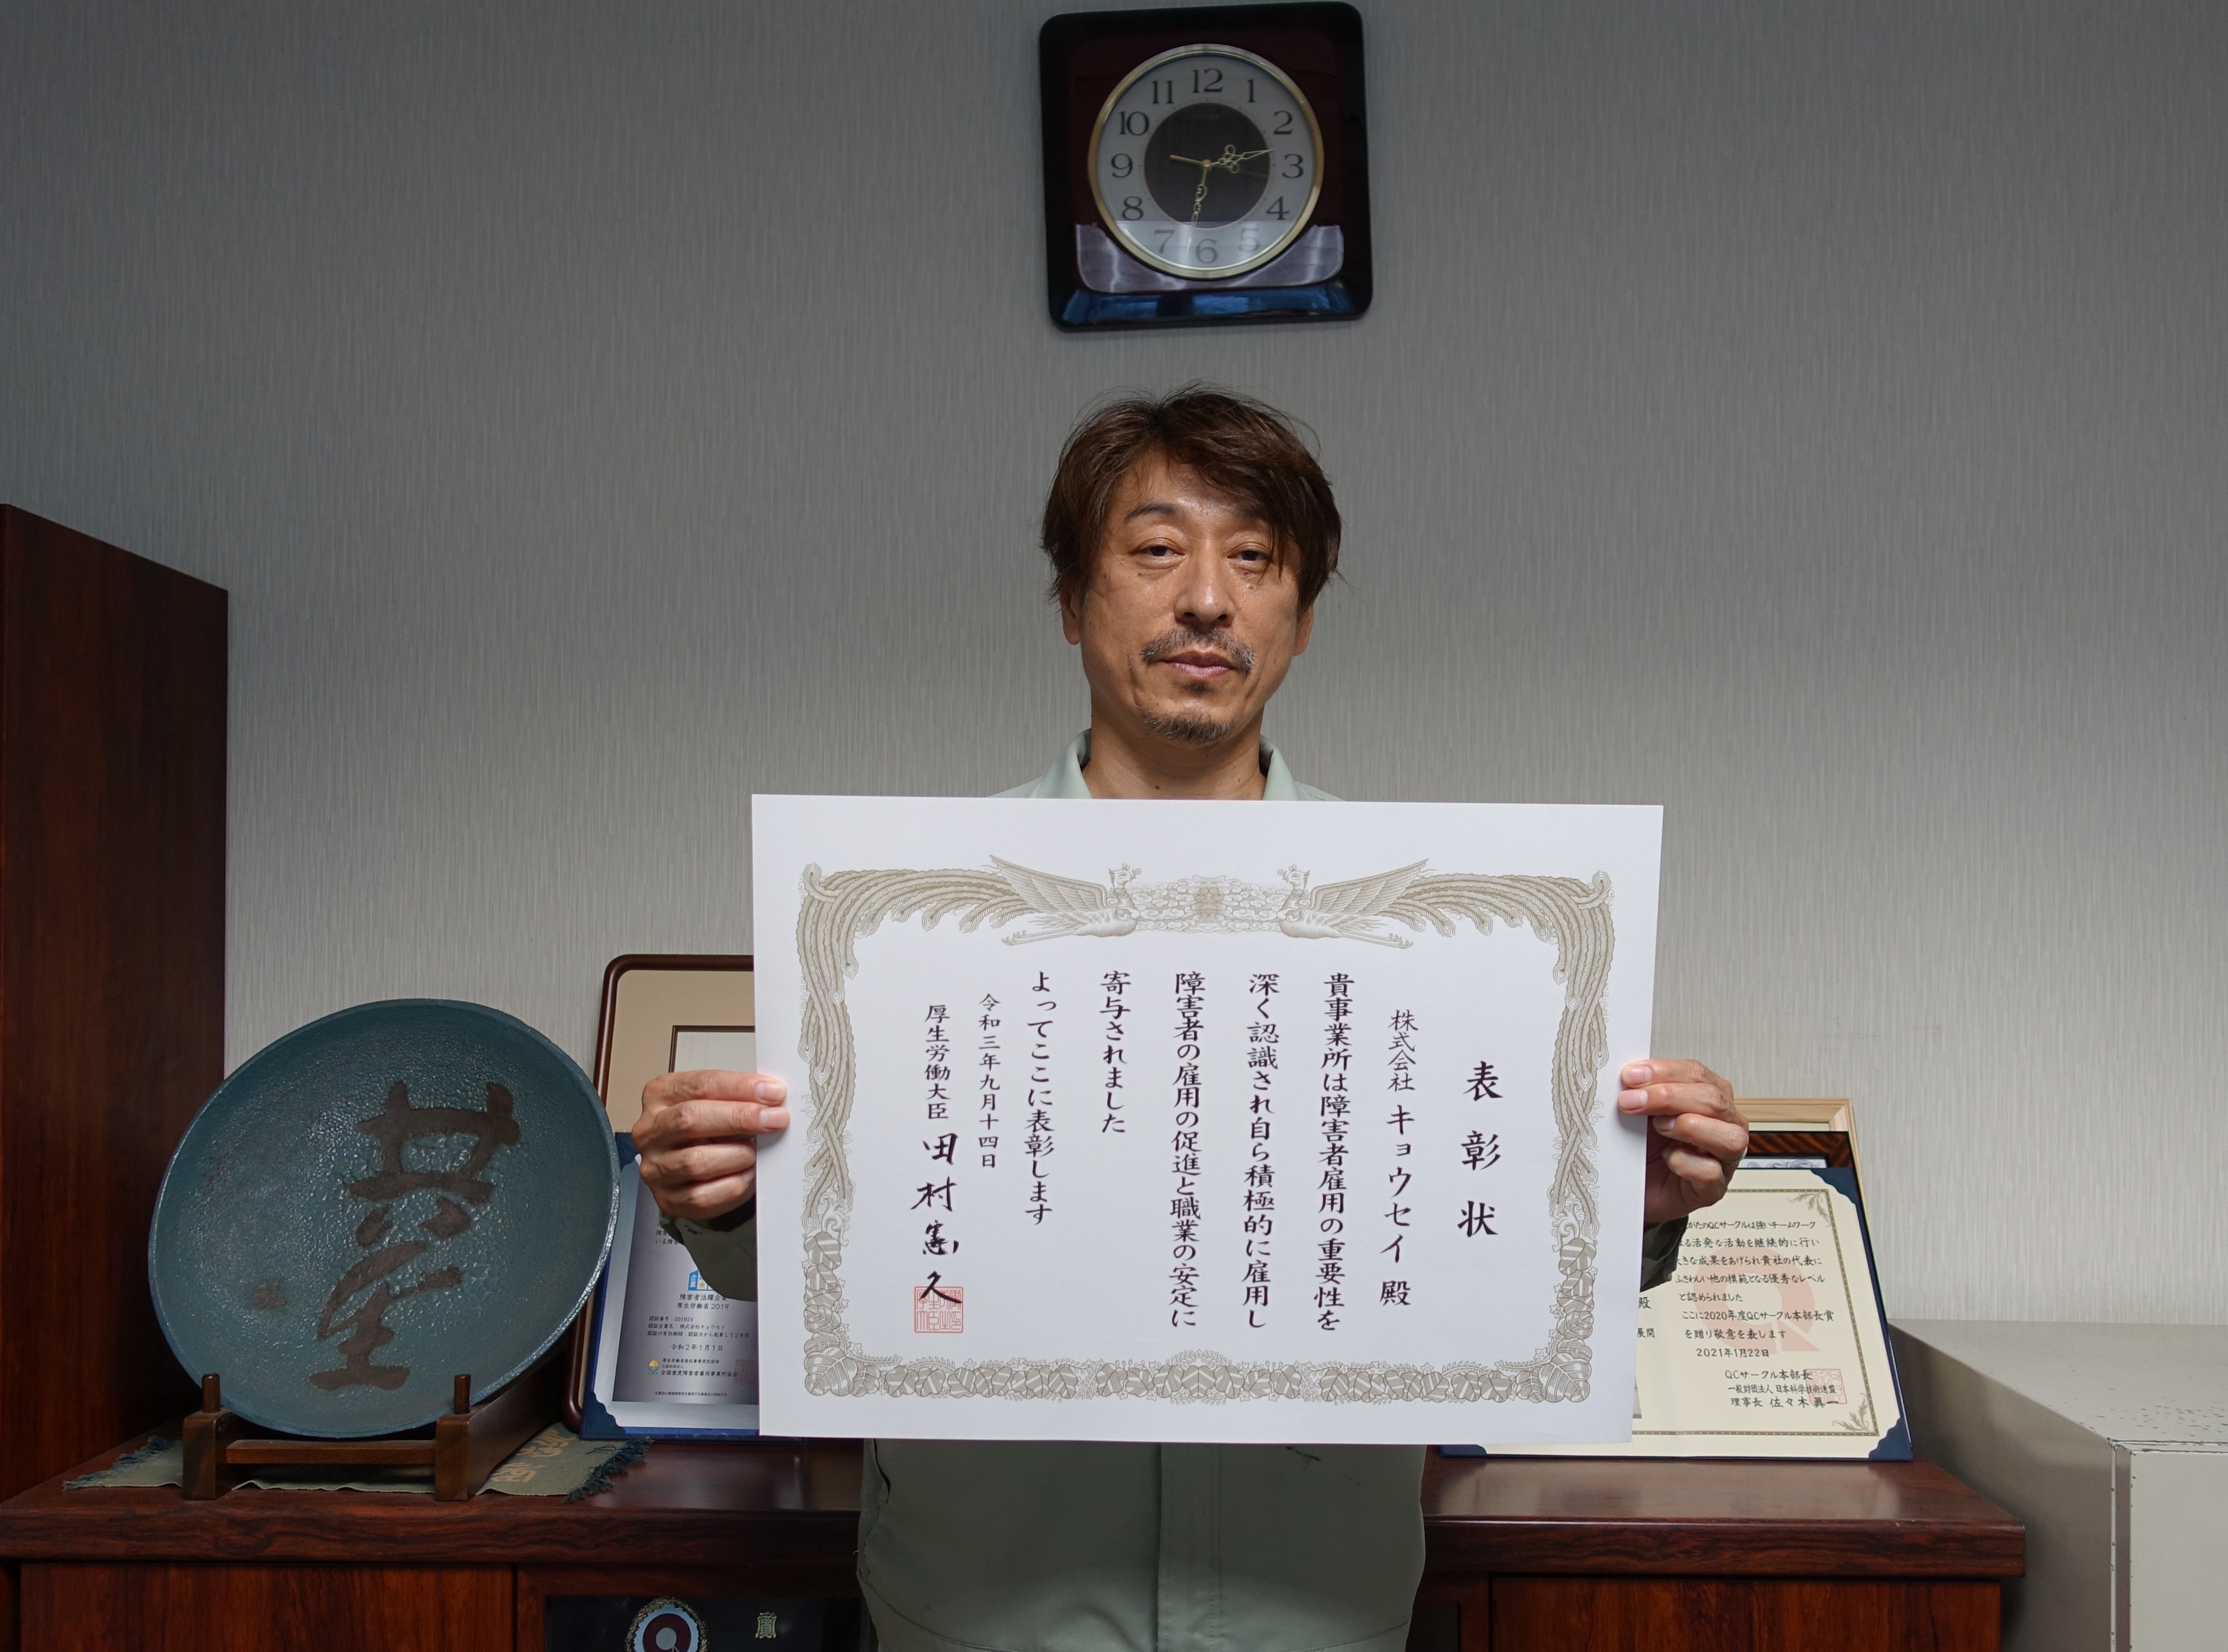 12
1
2
3
4
5
6
7
8
9
10
11
表彰状
株式会社 キョウセイ 殿
貴事業所は障害者雇用の重要性を
深く認識され自ら積極的に雇用し
障害者の雇用の促進と職業の安定に
寄与されました
よってここに表彰します
令和三年九月十四日
厚生労働大臣 田村憲久
共生
障害者活躍企業
厚生労働省2019
認証企業名:株式会社キョウセイ
令和2年1月1日
全国重度障害者雇用事業所協会
がたのQCサークルは強いチームワーク
よる活発な活動を継続的に行い
大きな成果をあげられ貴社の代表に
ふさわしい他の模範となる優秀なレベル
と認められました
ここに2020年度QCサークル本部長賞
を贈り敬意を表します
2021年1月22日
QCサークル本部長
一般財団法人 日本科学技術連盟
理事長 佐々木眞一
殿
展開
賞